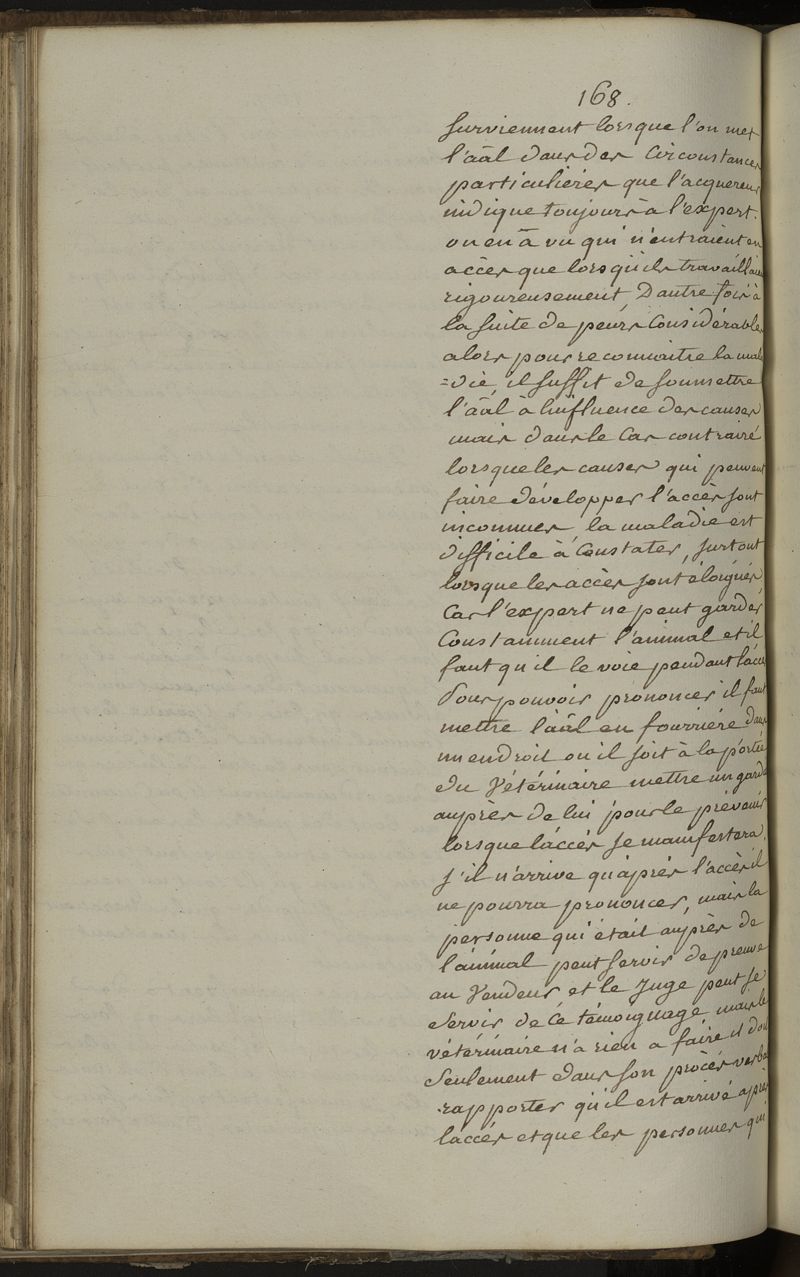 168.
surviennent lorsque l'on met
l'aâl dans des Circonstances
particulieres que l'acquereur
indique toujours à l'expert.
on en à vu qui n'entraient en
accès que lorsqu'ils travaillaient
rigoureusement, D'autre fois à
la suite de peurs Considérables
alors pour reconnaitre la mala
=die, il suffit de soumettre
l'aâl à linfluence des causes
mais dans le Cas contraire
lorsque les causes qui peuvent
faire développer l'accès sont
inconnues la maladie est
difficile à Constater, surtout
lorsque les accès sont éloignés
Car l'expert ne peut garder
Constamment l'animal et il
faut qu'il le voie pendant l'accès
Pour pouvoir prononcer il faut
mettre l'aâl en fourrière dans
un endroit ou il soit à la portée
du Vétérinaire mettre un garde
auprès de lui pour le prévenir
lorsque l'accès se manifestera,
s'il n'arrive qu'après l'accès il
ne pourra prononcer, mais la
personne qui était auprès de
l'animal peut servir de preuve
au Vendeur, et le Juge peut se
servir de Ce témoignage mais le
vétérinaire n'a rien a faire il doit
Seulement dans son procès verbal
rapporter qu'il est arrivé après
l'accès et que les personnes qui